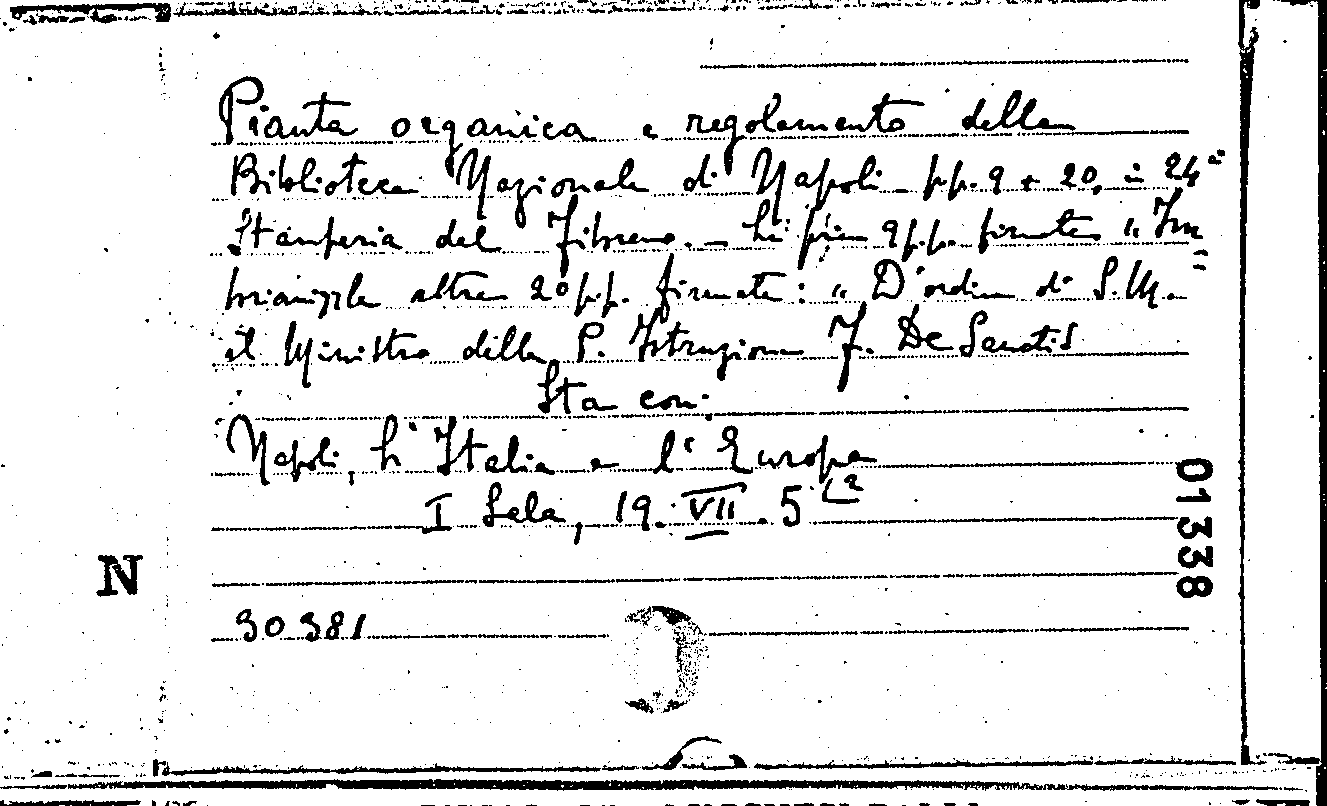 Pianta organica e regolamento della
Biblioteca Nazionale di Napoli - pp. 9 + 20, in 24°
Stamperia del Fibreno. - Le prime 9 pp. firmate "Im
briani", le altre 20 pp. firmate: "D'ordine di S. M.
il Ministro della P. Istruzione F. De Sanctis
Sta con:
Napoli, L'Italia e l'Europa
I Sala, 19. VII. 5
N
30381
01338